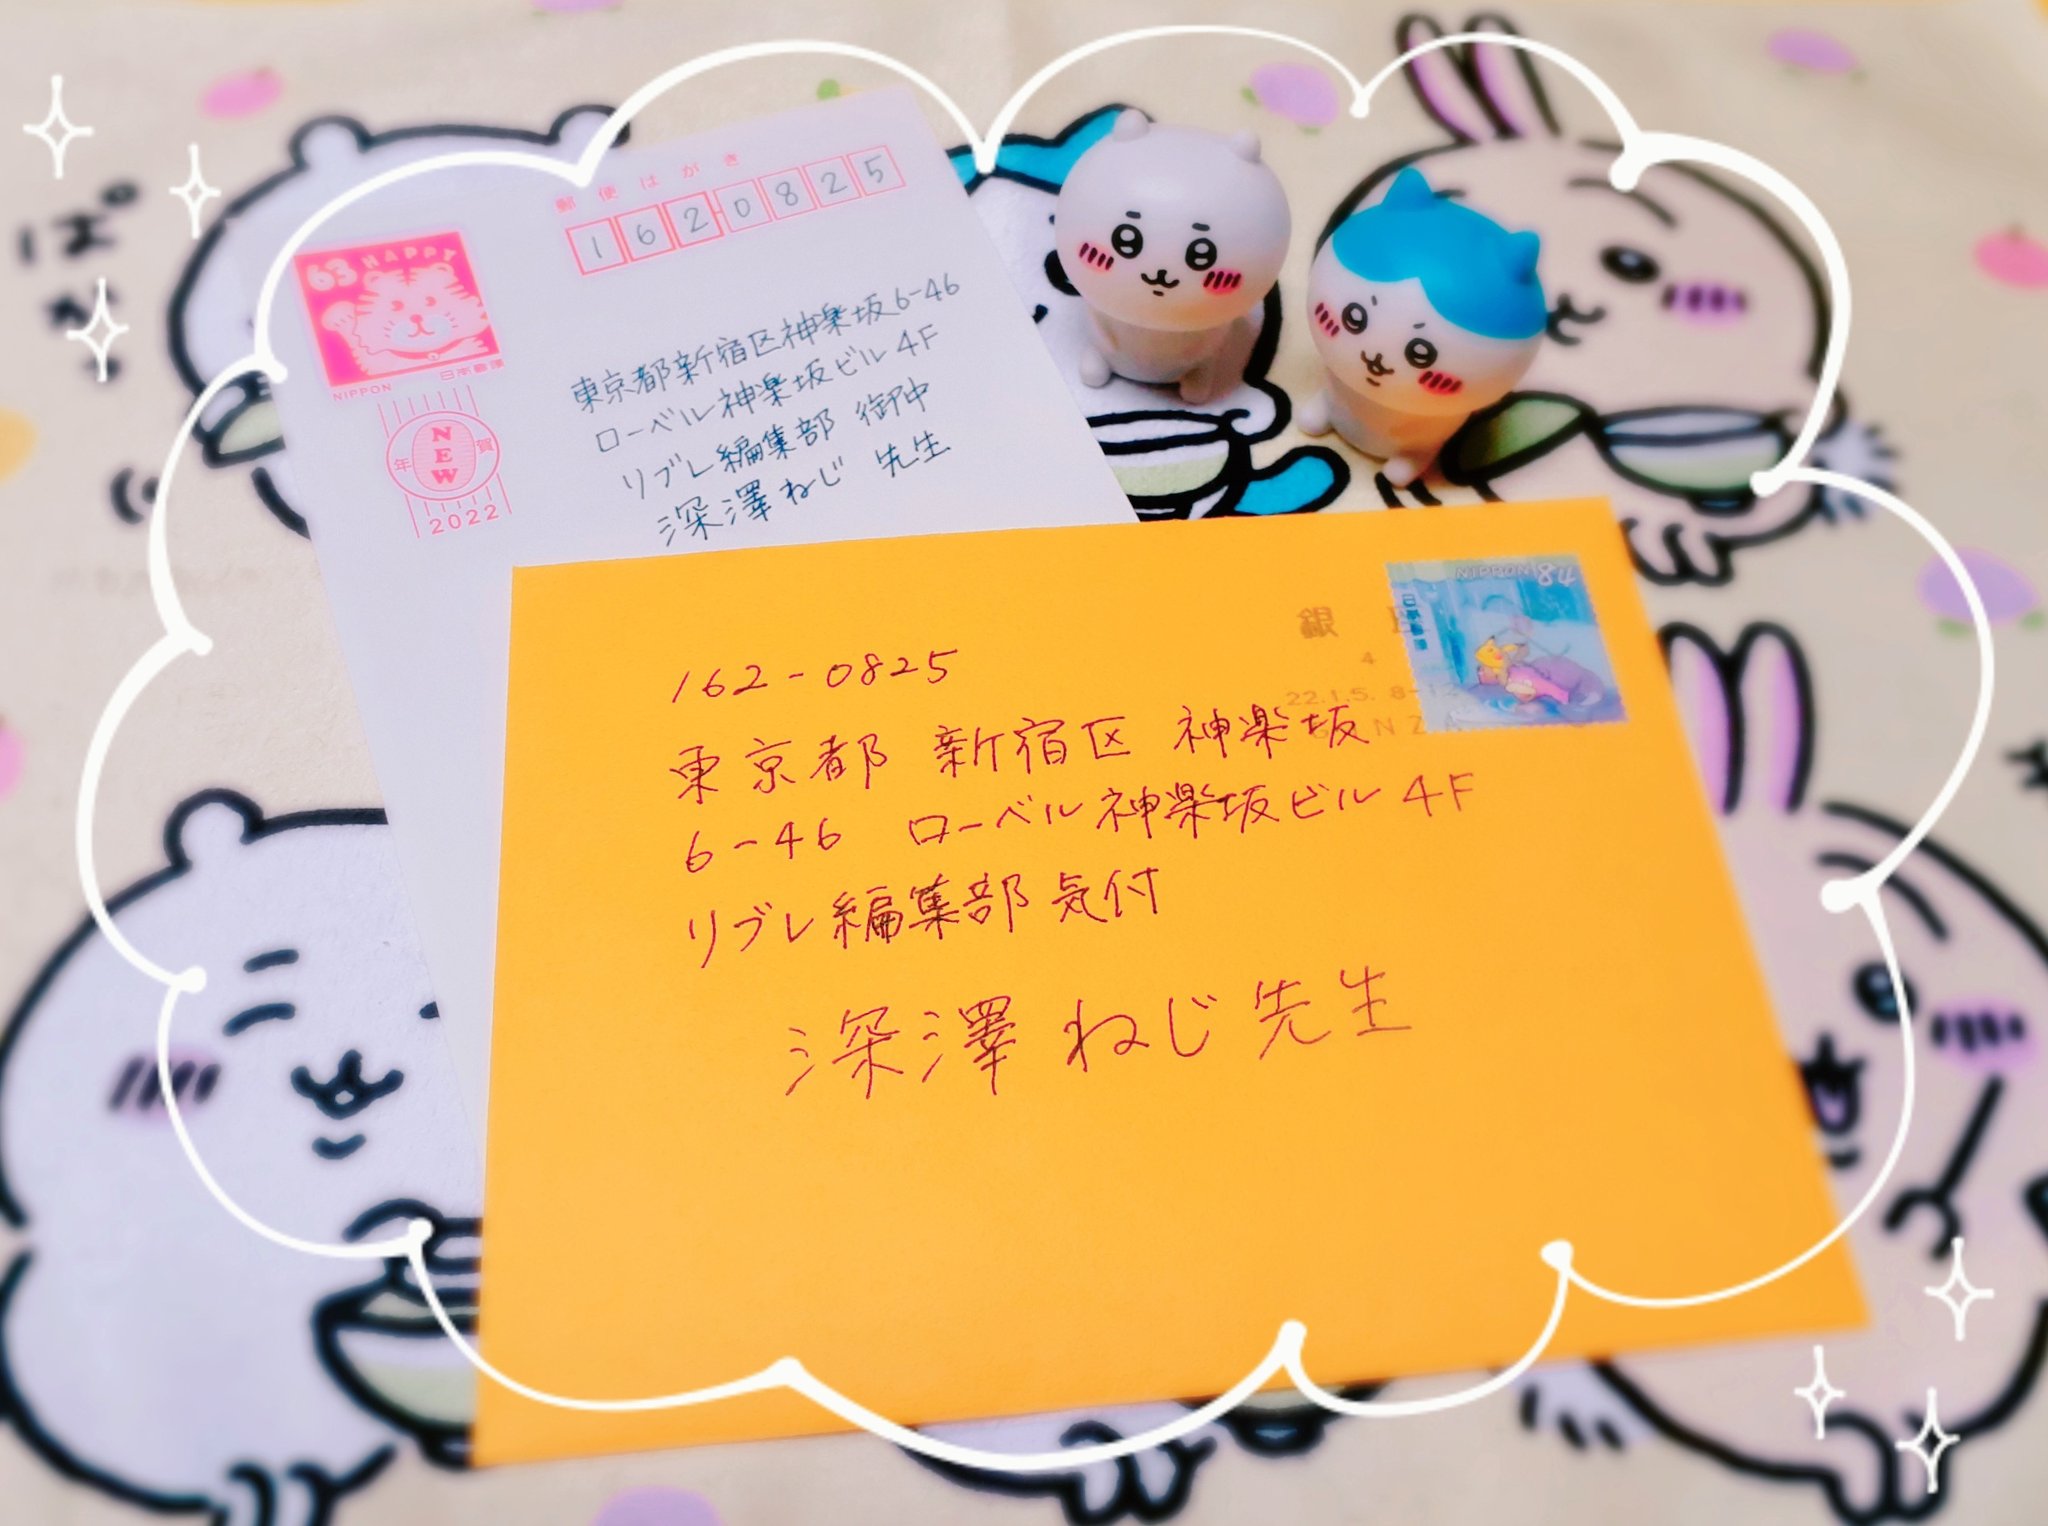 郵便はがき
162-0825
63 HAPPY
NIPPON 日本郵便
NEW
年賀
2022
東京都新宿区神楽坂6-46
ローベル神楽坂ビル4F
リブレ編集部 御中
深澤ねじ 先生
NIPPON 84
日本郵便
銀
22.1.5. 8-12
162-0825
東京都 新宿区 神楽坂
6-46 ローベル神楽坂ビル4F
リブレ編集部 気付
深澤 ねじ 先生